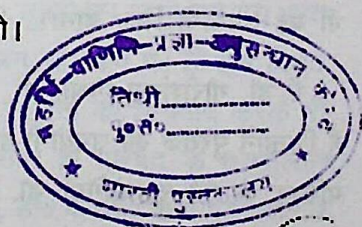 ी।
महर्षि-पाणिनि-प्रज्ञा-अनुसन्धान केन्द्र
तिथी..............
पु०सं०..............
भारती पुस्तकालय